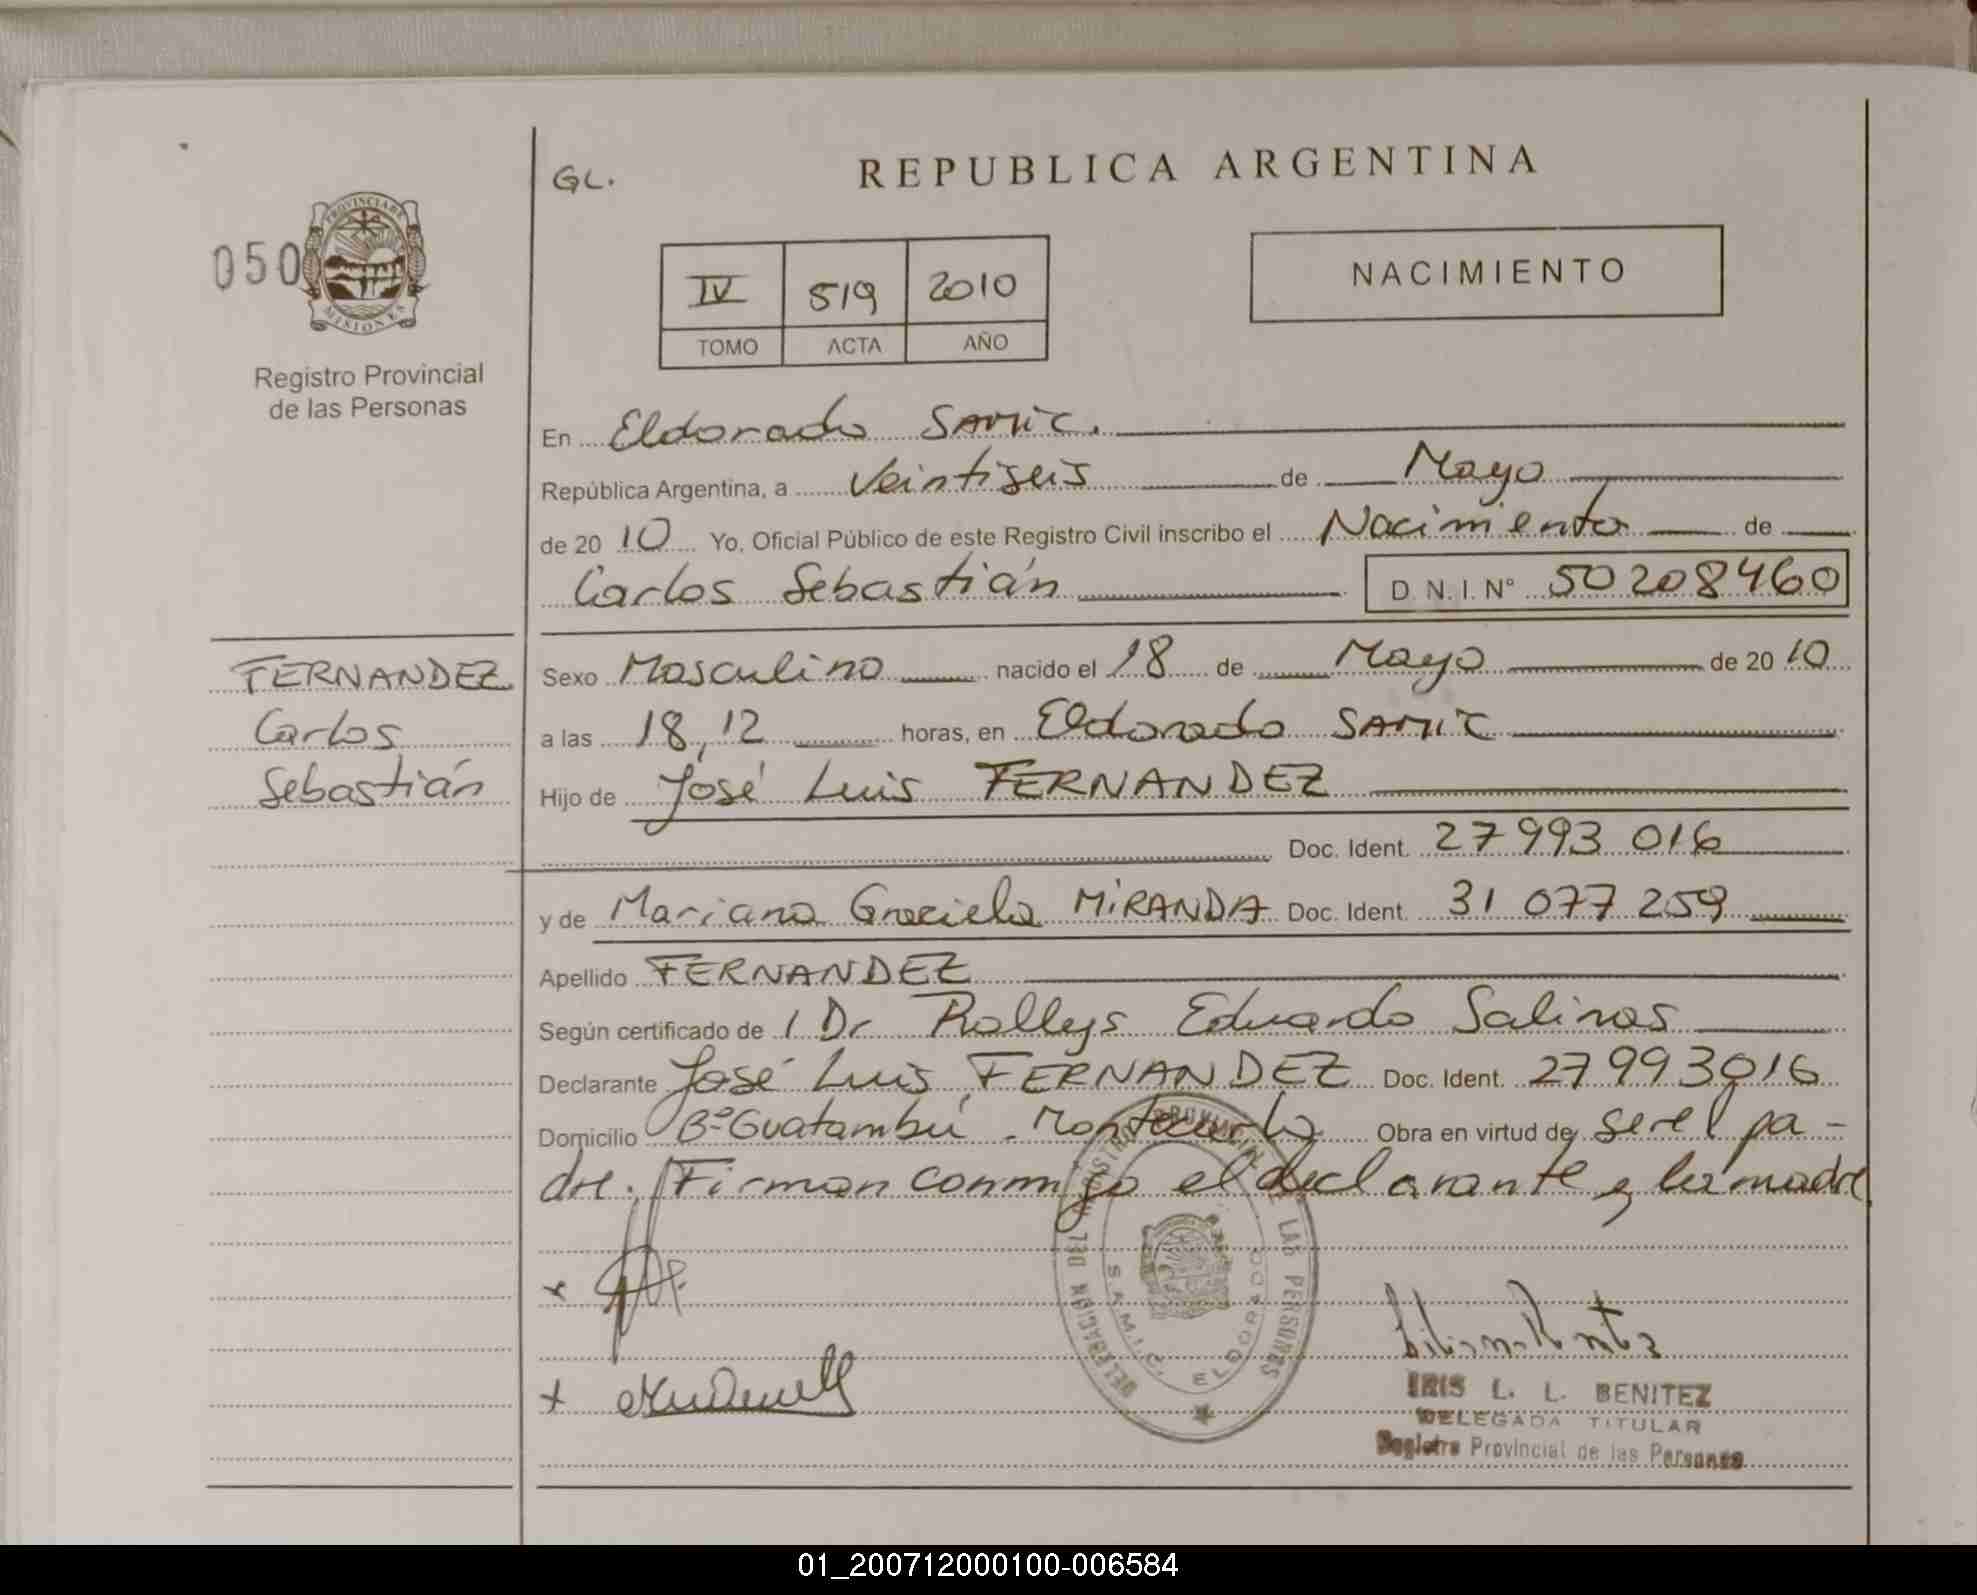 GL.
REPUBLICA ARGENTINA
050
PROVINCIA DE
MISIONES
Registro Provincial
de las Personas
IV 519 2010
TOMO ACTA AÑO
NACIMIENTO
En Eldorado SAMIC.
República Argentina, a Veintiseis de Mayo
de 2010 Yo, Oficial Público de este Registro Civil inscribo el Nacimiento de
Carlos Sebastián D.N.I. Nº 50208460
FERNANDEZ
Carlos
Sebastián
Sexo Masculino nacido el 18 de Mayo de 2010
a las 18,12 horas, en Eldorado SAMIC
Hijo de José Luis FERNANDEZ
Doc. Ident. 27 993 016
y de Mariana Graciela MIRANDA Doc. Ident. 31 077 259
Apellido FERNANDEZ
Según certificado de 1 Dr Rollys Eduardo Salinas
Declarante José Luis FERNANDEZ Doc. Ident. 27993016
Domicilio Bº Guatambú - Montecarlo Obra en virtud de ser el pa-
dre. Firman conmigo el declarante y la madre
DELEGACIÓN DEL REGISTRO PROVINCIAL DE LAS PERSONAS
S.A.M.I.C. ELDORADO
IRIS L. L. BENITEZ
DELEGADA TITULAR
Registro Provincial de las Personas
01_200712000100-006584